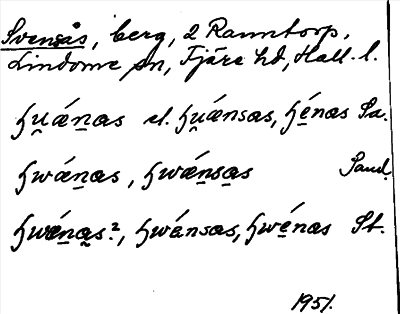 Svensås, berg, 2 Ranntorp,
Lindome sn, Fjäre hd, Hall. l.
hu̯ǽn̲as el. hu̯ǽnsas, hé̲nas Sa.
hwǽn̲as, hwǽn̲sa̲s Sand.
hwé̲n̲a̲s?, hwánsas, hwé̲nas St.
1951.